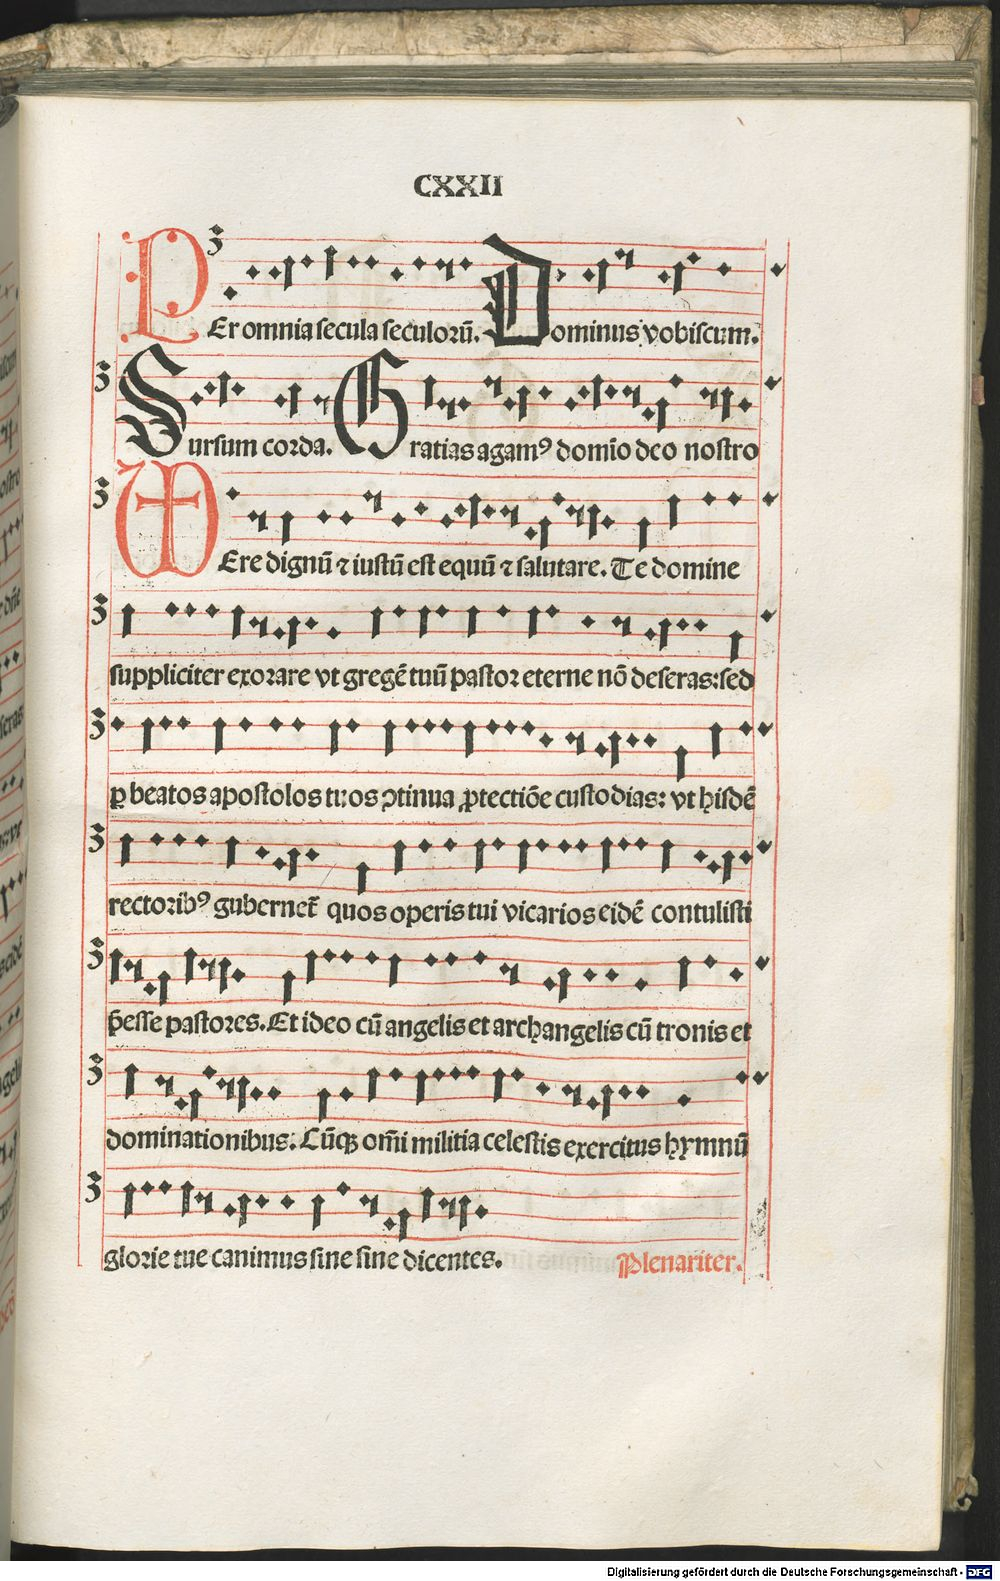 CXXII
PEr omnia secula seculorū. Dominus vobiscum.
Sursum corda. Gratias agamꝰ domīo deo nostro
VEre dignū ⁊ iustū est equū ⁊ salutare. Te domine
suppliciter exorare vt gregē tuū pastor eterne nō deseras: sed
ꝑ beatos apostolos tuos ꝯtinua ꝓtectiōe custodias: vt hisdē
rectoribꝰ gubernet̄ quos operis tui vicarios eidē contulisti
p̄esse pastores. Et ideo cū angelis et archangelis cū tronis et
dominationibus. Cūqꝫ om̄i militia celestis exercitus hymnū
glorie tue canimus sine fine dicentes. Plenariter.
Digitalisierung gefördert durch die Deutsche Forschungsgemeinschaft - DFG